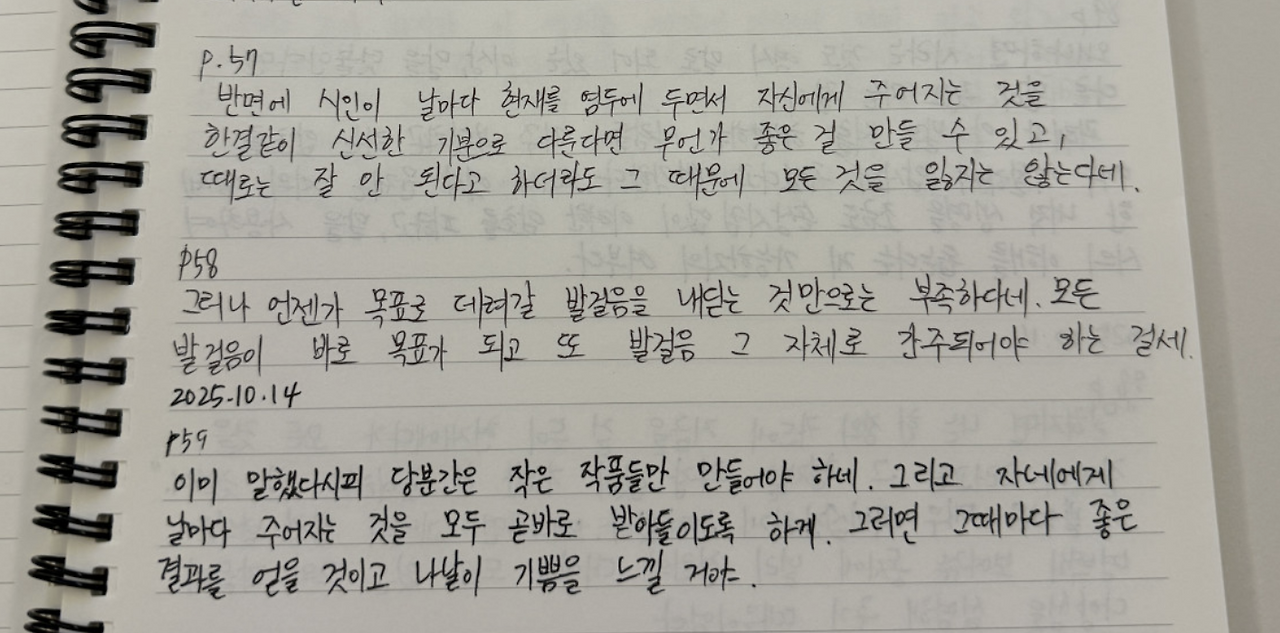 p.57
반면에 시인이 날마다 현재를 염두에 두면서 자신에게 주어지는 것을
한결같이 신선한 기분으로 다룬다면 무언가 좋은 걸 만들 수 있고,
때로는 잘 안 된다고 하더라도 그 때문에 모든 것을 잃지는 않는다네.
p58
그러나 언젠가 목표로 데려갈 발걸음을 내딛는 것만으로는 부족하다네. 모든
발걸음이 바로 목표가 되고 또 발걸음 그 자체로 간주되어야 하는 걸세.
2025.10.14
p59
이미 말했다시피 당분간은 작은 작품들만 만들어야 하네. 그리고 자네에게
날마다 주어지는 것을 모두 곧바로 받아들이도록 하게. 그러면 그때마다 좋은
결과를 얻을 것이고 나날이 기쁨을 느낄 거야.